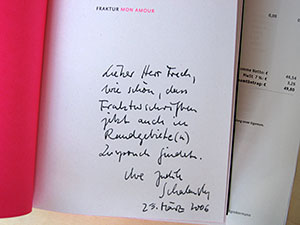 FRAKTUR MON AMOUR
Lieber Herr Frech,
wie schön, dass
Frakturschriften
jetzt auch in
Randgebiete(n)
Zuspruch finden.
Ihre Judith
Schalansky
23. März 2006